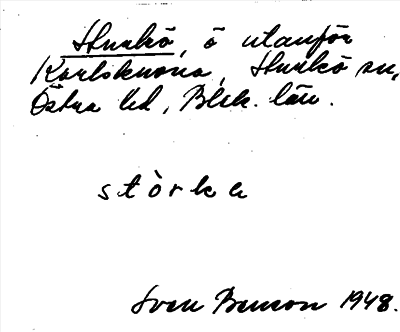 Sturkö, ö utanför
Karlskrona, Sturkö sn,
Östra hd, Blek. län.
stòrkα
Sven Benson 1948.